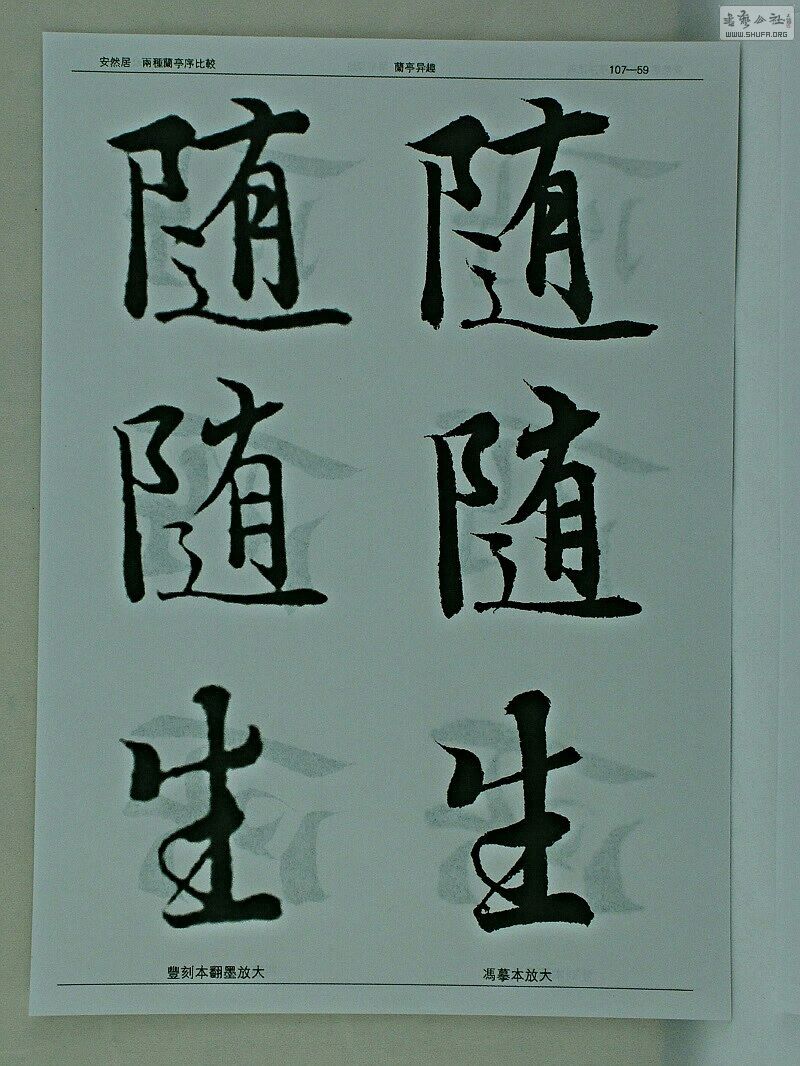 書藝公社
WWW.SHUFA.ORG
安然居 兩種蘭亭序比較 蘭亭异趣 107—59
随 随
随 随
生 生
豐刻本翻墨放大 馮摹本放大